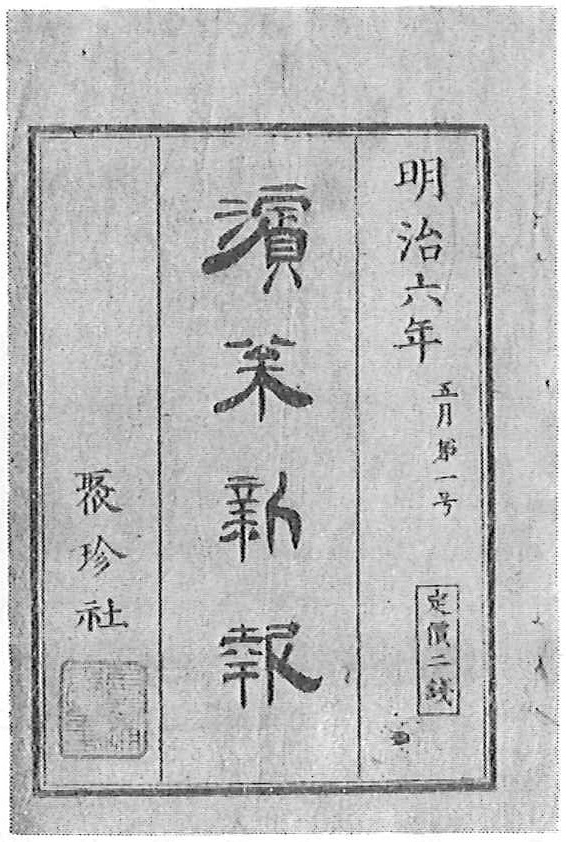 明治六年 五月第一号 定價二錢
濱枀新報
聚珍社